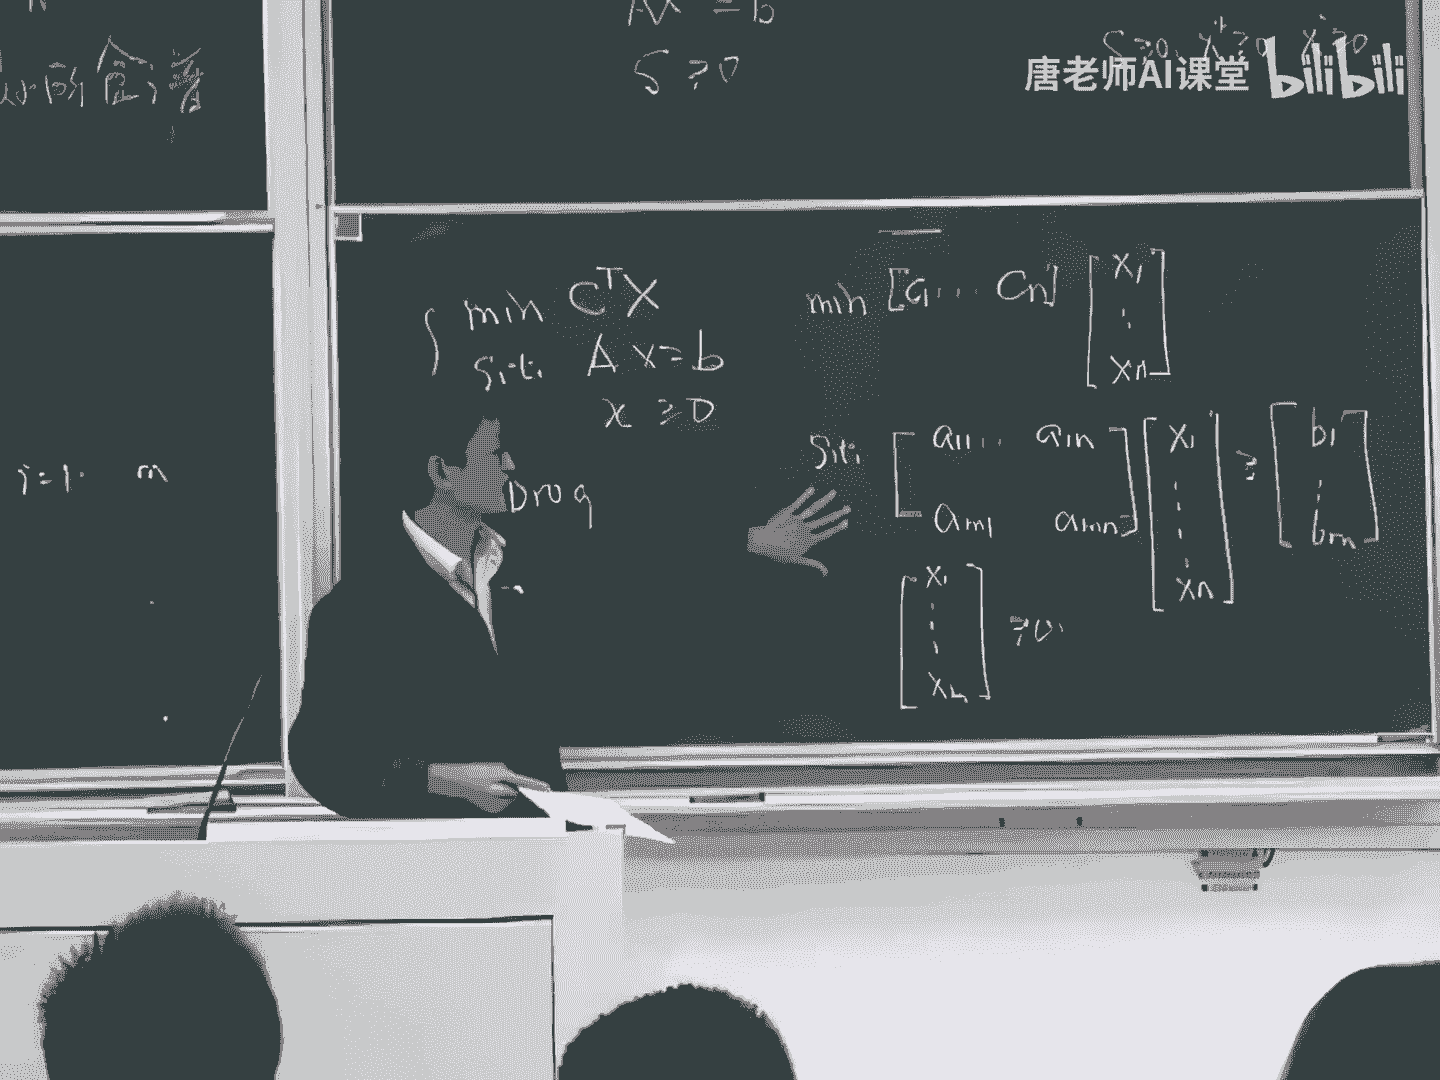 小的食谱
i=1. m
Ax = b
S ≥ 0
S ≥ 0, x⁺ ≥ 0, x⁻ ≥ 0
唐老师AI课堂 bilibili
min CᵀX
S.t. A x = b
x ≥ 0
Drog
min [C₁ ... Cn] [x₁ ⋮ xn]
S.t. [a₁₁ ... a₁n
am₁ amn] [x₁ ⋮ xn] ≥ [b₁ ⋮ bm]
[x₁ ⋮ xn] ≥ 0.